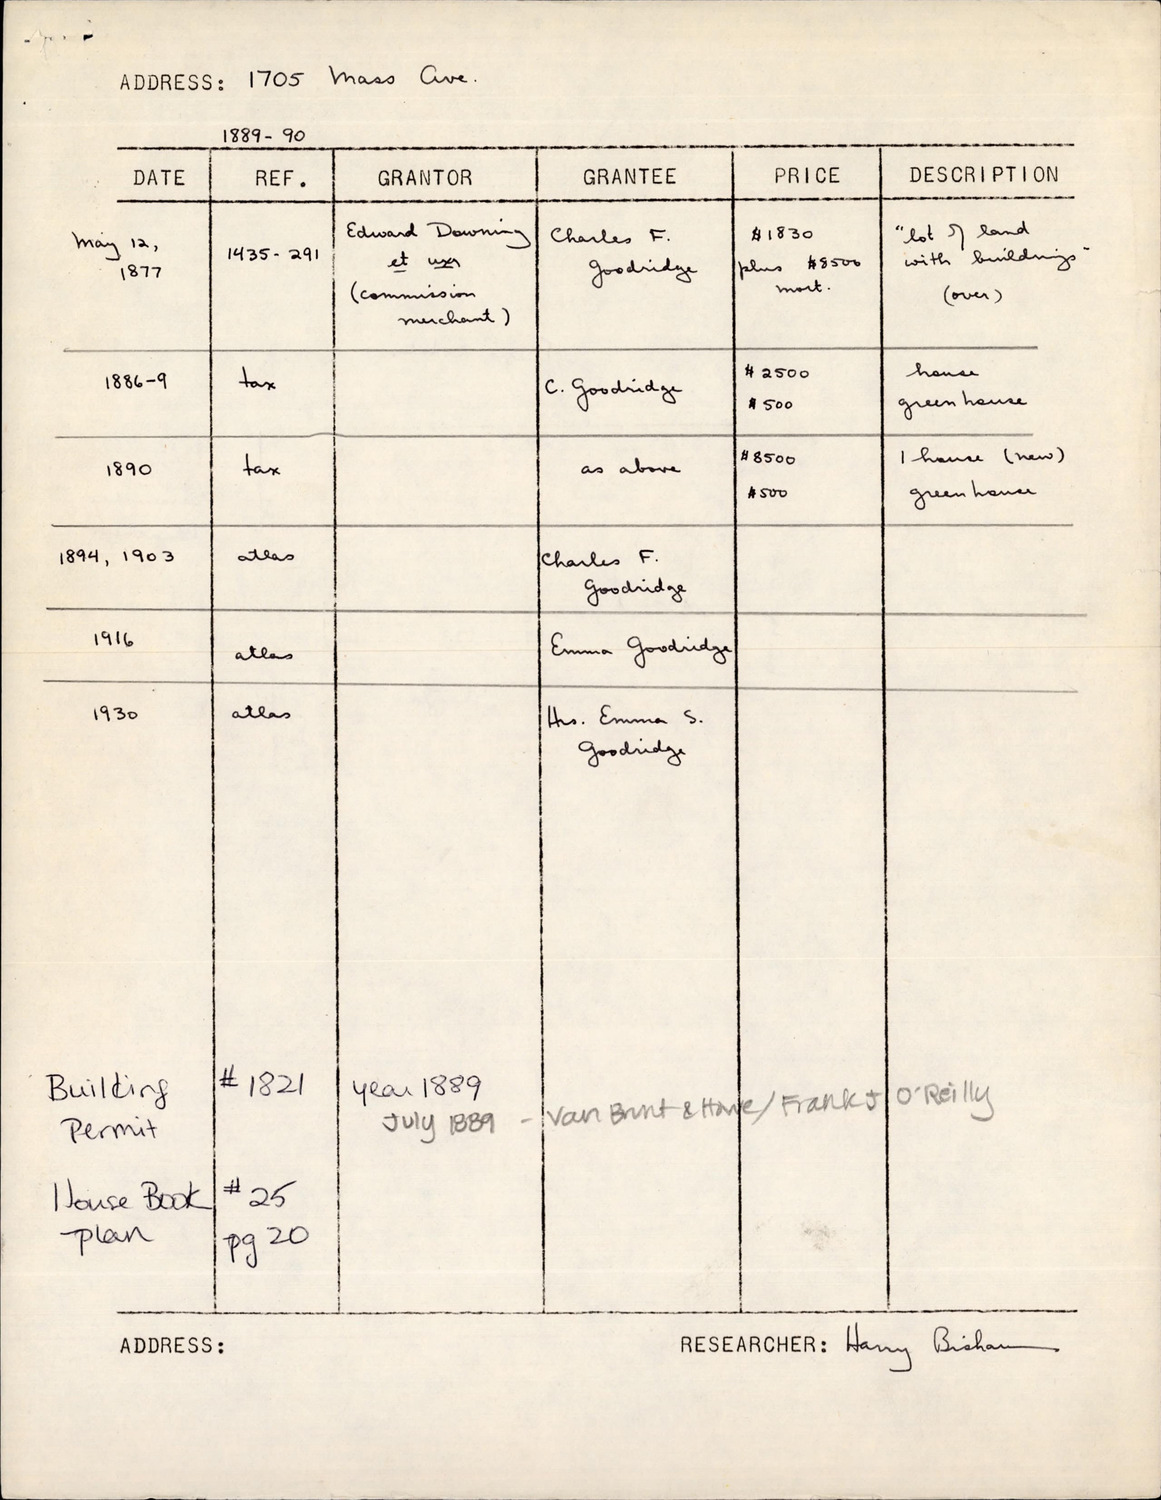 ADDRESS: 1705 Mass Ave.
1889-90
DATE REF. GRANTOR GRANTEE PRICE DESCRIPTION
May 12, 1877 1435-291 Edward Downing et uxr (commission merchant) Charles F. Goodridge $1830 plus $8500 mort. "lot of land with buildings" (over)
1886-9 tax C. Goodridge $2500 house
$500 greenhouse
1890 tax as above $8500 1 house (new)
$500 greenhouse
1894, 1903 atlas Charles F. Goodridge
1916 atlas Emma Goodridge
1930 atlas Hrs. Emma S. Goodridge
Building Permit #1821 year 1889
July 1889 - Van Brunt & Howe/ Frank J O'Reilly
House Book plan #25 pg 20
ADDRESS: RESEARCHER: Harry